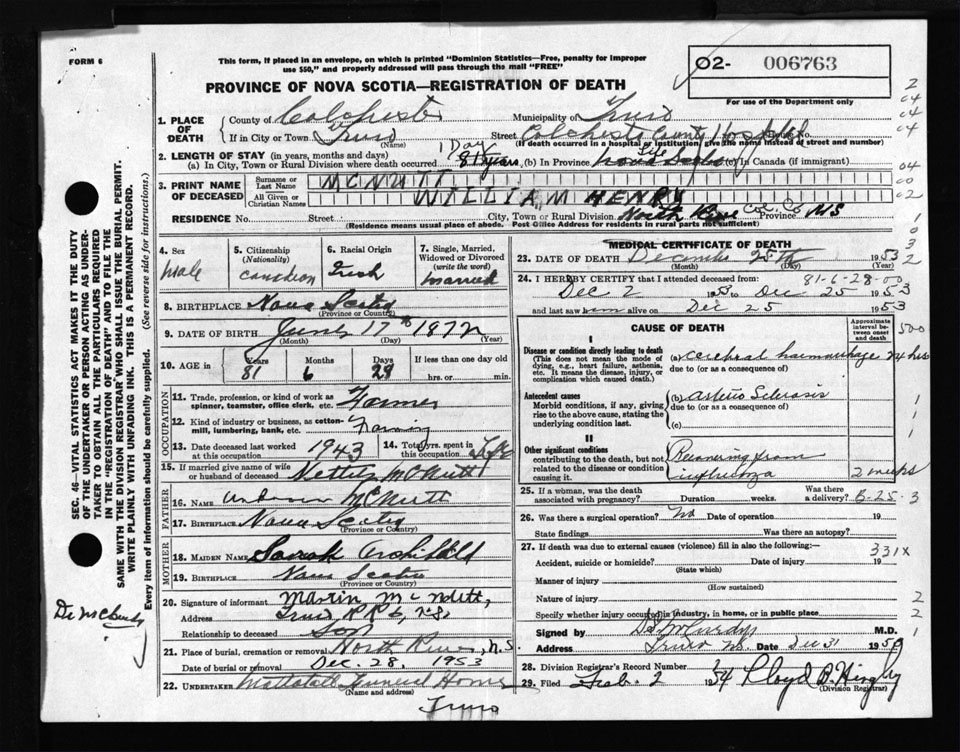 FORM 6
This form, if placed in an envelope, on which is printed "Dominion Statistics—Free, penalty for improper
use $50," and properly addressed will pass through the mail "FREE"
O2- 006763
PROVINCE OF NOVA SCOTIA—REGISTRATION OF DEATH
For use of the Department only
1. PLACE OF DEATH
County of Colchester Municipality of Truro
If in City or Town Truro Street Colchester County Hospital No.
(Name) (If death occurred in a hospital or institution, give the name instead of street and number)
2. LENGTH OF STAY (in years, months and days) 1 Day Life
(a) In City, Town or Rural Division where death occurred 81 years (b) In Province Nova Scotia (c) In Canada (if immigrant)
3. PRINT NAME OF DECEASED
Surname or Last Name MCNUTT
All Given or Christian Names WILLIAM HENRY
RESIDENCE No. Street City, Town or Rural Division North River Col. Co Province NS
(Residence means usual place of abode. Post Office Address for residents in rural parts not sufficient)
4. Sex Male
5. Citizenship (Nationality) Canadian
6. Racial Origin Irish
7. Single, Married, Widowed or Divorced (write the word) Married
8. BIRTHPLACE Nova Scotia
(Province or Country)
9. DATE OF BIRTH June 17th 1872
(Month) (Day) (Year)
10. AGE in Years 81 Months 6 Days If less than one day old hrs. or min.
OCCUPATION
11. Trade, profession, or kind of work as spinner, teamster, office clerk, etc. Farmer
12. Kind of industry or business, as cotton-mill, lumbering, bank, etc. Farming
13. Date deceased last worked at this occupation 1943
14. Total yrs. spent in this occupation Life
15. If married give name of wife or husband of deceased Nettie McNutt
FATHER
16. NAME McNutt
17. BIRTHPLACE Nova Scotia
(Province or Country)
MOTHER
18. MAIDEN NAME Sarah Archibald
19. BIRTHPLACE Nova Scotia
(Province or Country)
20. Signature of informant Martin McNutt,
Address Truro RR 6, N.S.
Relationship to deceased Son
21. Place of burial, cremation or removal North River, N.S
Date of burial or removal Dec. 28, 1953
22. UNDERTAKER Mattatall Funeral Home
(Name and address)
Truro
MEDICAL CERTIFICATE OF DEATH
23. DATE OF DEATH December 25th 1953
(Month) (Day) (Year)
81-6-28-00
24. I HEREBY CERTIFY that I attended deceased from:
Dec 2 1953 to Dec 25 1953
and last saw him alive on Dec 25 1953
CAUSE OF DEATH
Approximate interval between onset and death
I
Disease or condition directly leading to death (a) cerebral haemorrhage 24 hrs
(This does not mean the mode of dying, e.g., heart failure, asthenia, etc. It means the disease, injury, or complication which caused death.)
due to (or as a consequence of)
Antecedent causes (b) Arterio Sclerosis
Morbid conditions, if any, giving rise to the above cause, stating the underlying condition last.
due to (or as a consequence of)
(c)
II
Other significant conditions
contributing to the death, but not related to the disease or condition causing it.
Recovering from influenza 2 weeks
25. If a woman, was the death associated with pregnancy? Duration weeks. Was there a delivery? B-25-3
26. Was there a surgical operation? No Date of operation 19
State findings Was there an autopsy?
27. If death was due to external causes (violence) fill in also the following:— 331X
Accident, suicide or homicide? Date of injury 19
(State which)
Manner of injury
(How sustained)
Nature of injury
Specify whether injury occurred in industry, in home, or in public place
Signed by M.D.
Address Truro NS. Date Dec 31
28. Division Registrar's Record Number
29. Filed Feb. 2 1954
(Division Registrar)
SEC. 46—VITAL STATISTICS ACT MAKES IT THE DUTY
OF THE UNDERTAKER OR PERSON ACTING AS UNDER-
TAKER TO OBTAIN ALL THE PARTICULARS REQUIRED
IN THE "REGISTRATION OF DEATH" AND TO FILE THE
SAME WITH THE DIVISION REGISTRAR WHO SHALL ISSUE THE BURIAL PERMIT.
WRITE PLAINLY WITH UNFADING INK. THIS IS A PERMANENT RECORD.
Every item of information should be carefully supplied. (See reverse side for instructions.)